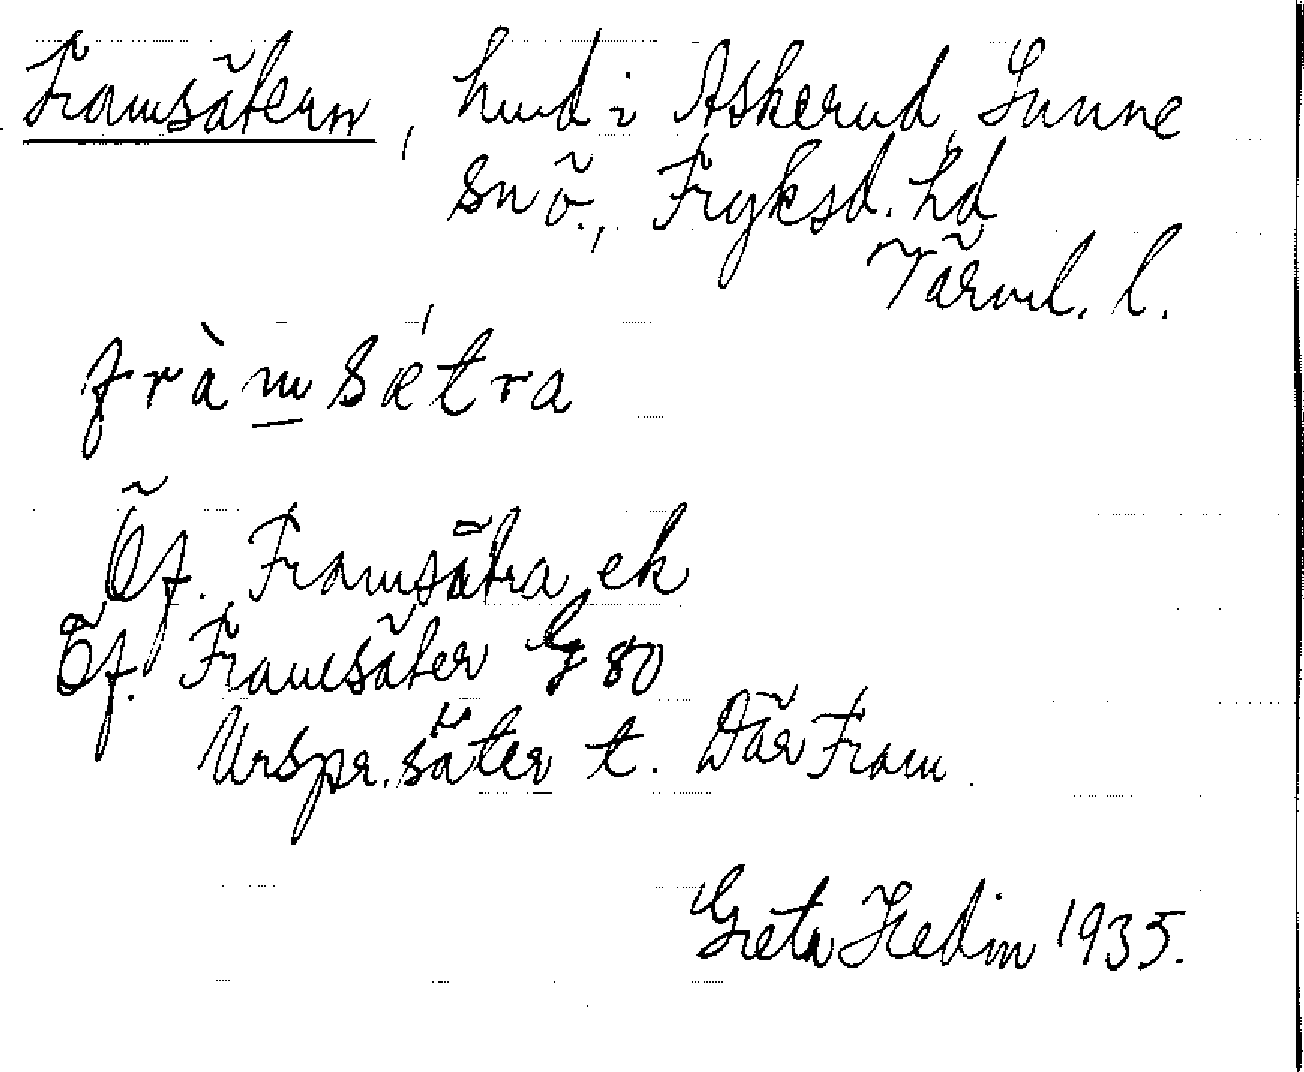 Framsätern, hmd i Askerud, Sunne
snö., Fryksd. hd
Värml. l.
fràmsǽtra
Öf. Framsätra ek
Öf. Framsäter G 80
Urspr. säter t. Där Fram.
Greta Hedin 1935.